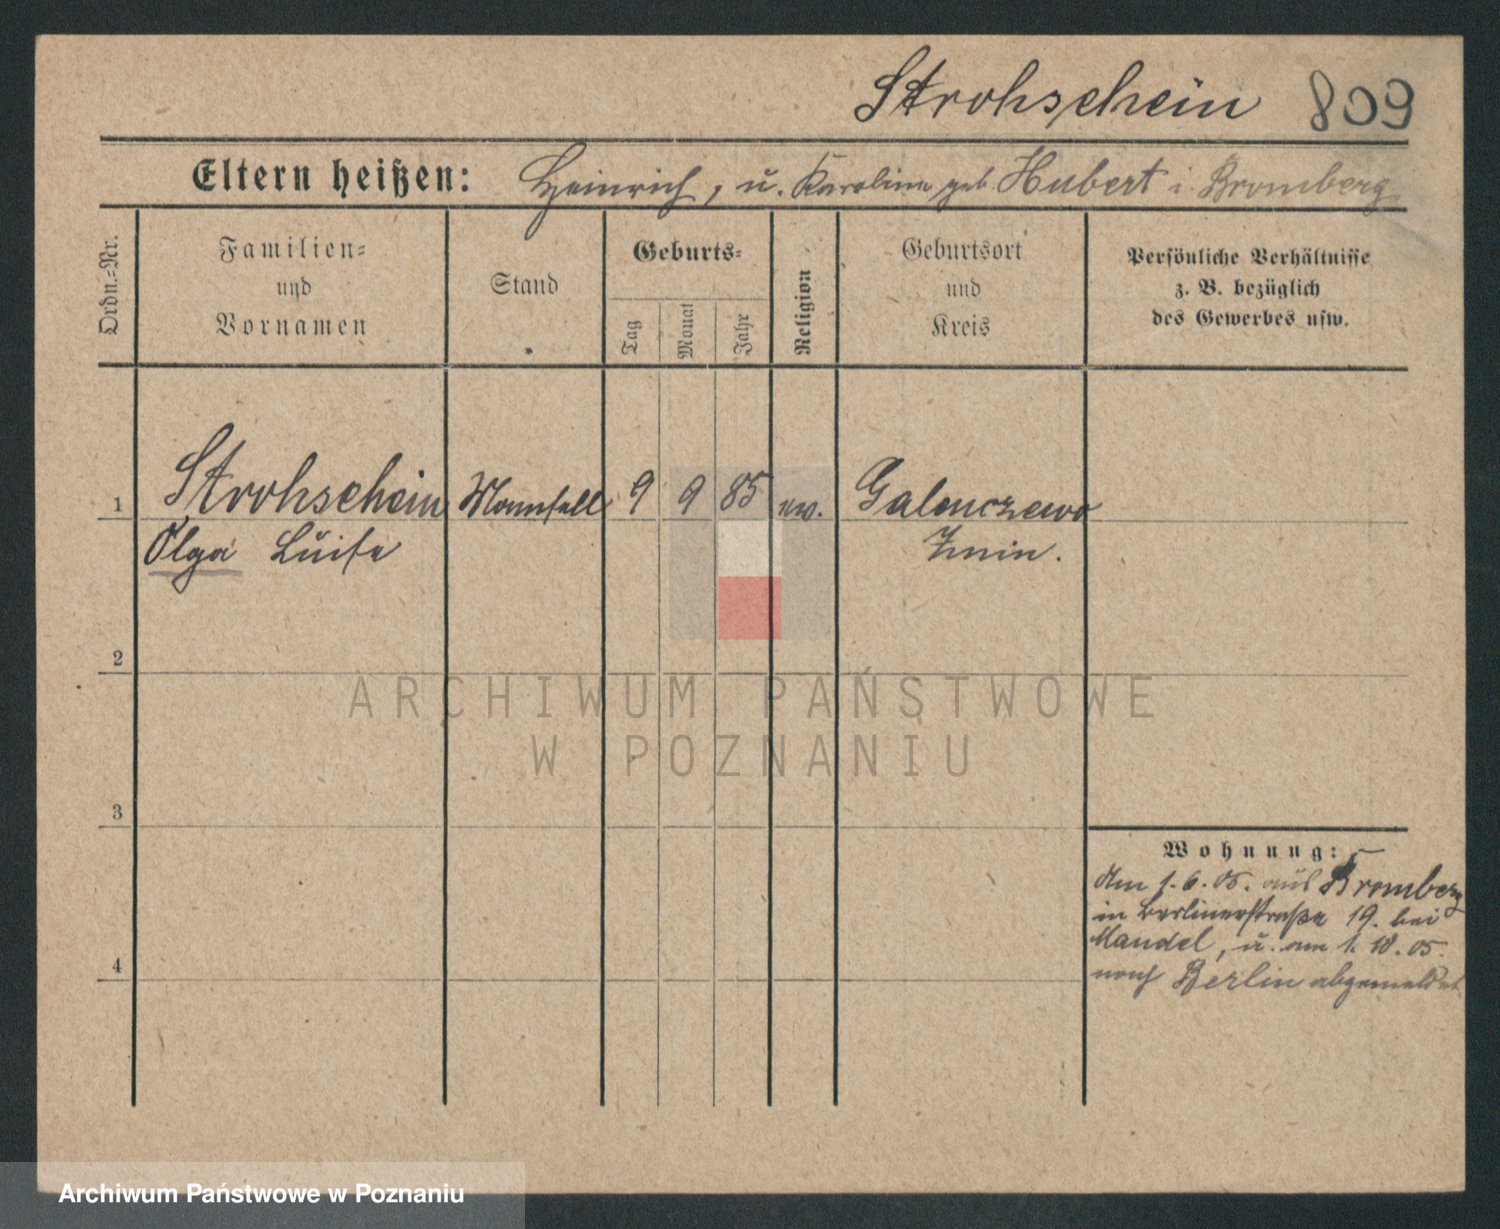 Strohschein 809
Eltern heißen: Heinrich, u. Karoline geb. Hubert i. Bromberg
Ordn.-Nr.
Familien-
und
Vornamen
Stand
Geburts-
Tag
Monat
Jahr
Religion
Geburtsort
und
Kreis
Persönliche Verhältnisse
z. B. bezüglich
des Gewerbes usw.
1 Strohschein 9 9 85 ev. Galenczewo
Olga Luise Znin.
2
ARCHIWUM PAŃSTWOWE
W POZNANIU
3
Wohnung:
Am 1. 6. 05. aus Bromberg
in Berlinerstraße 19. bei
Mandel, u. am 1. 10. 05.
nach Berlin abgemeldet
4
Archiwum Państwowe w Poznaniu